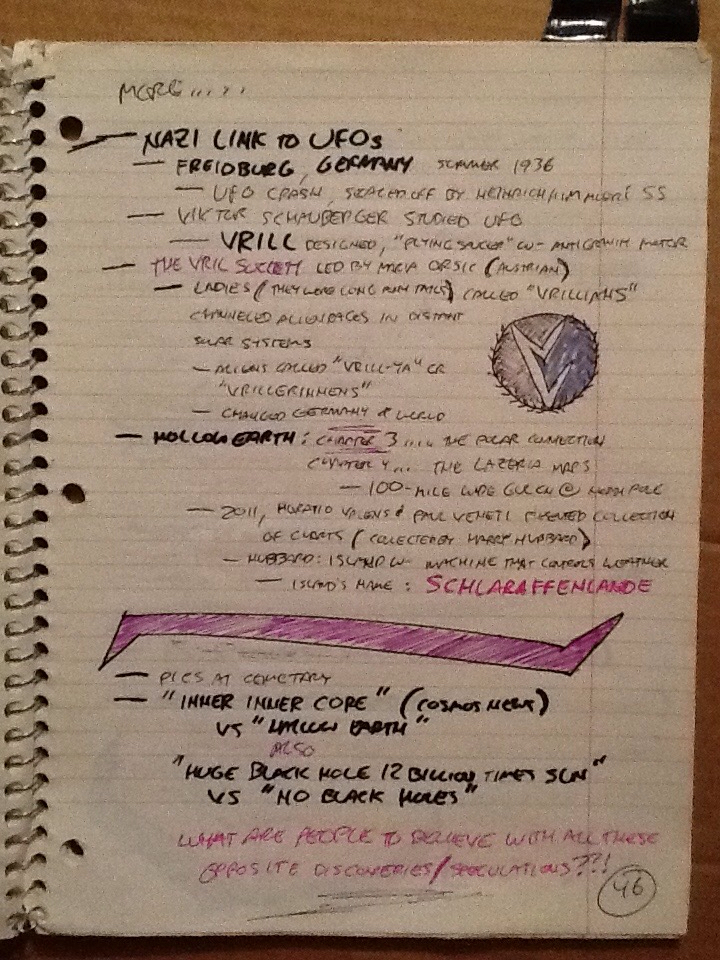 MORE.....
— NAZI LINK TO UFOs
— FREIDBURG, GERMANY SUMMER 1936
— UFO CRASH, SEALED OFF BY HEINRICH HIMMLER'S SS
— VIKTOR SCHAUBERGER STUDIED UFO
— VRILL DESIGNED, "FLYING SAUCER" W- ANTIGRAVITY MOTOR
— THE VRIL SOCIETY LED BY MARIA ORSIC (AUSTRIAN)
— LADIES (THEY WORE LONG PONY TAILS) CALLED "VRILLIANS"
CHANNELED ALIEN RACES IN DISTANT
SOLAR SYSTEMS
— ALIENS CALLED "VRILL-YA" OR
"VRILLERINNENS"
— CHANGED GERMANY & WORLD
— HOLLOW EARTH: CHAPTER 3.... THE POLAR CONNECTION
CHAPTER 4... THE LAZERIA MAPS
— 100-MILE WIDE GULCH @ NORTH POLE
— 2011, HORATIO VALENS & PAUL VENETI COLLECTION
OF CHARTS (COLLECTED BY HARRY HUBBARD)
— HUBBARD: ISLAND W- MACHINE THAT CONTROLS WEATHER
— ISLAND'S NAME: SCHLARAFFENLANDE
— PICS AT CEMETARY
— "INNER INNER CORE" (COSMOS NEWS)
VS "HOLLOW EARTH"
ALSO
"HUGE BLACK HOLE 12 BILLION TIMES SUN"
VS "NO BLACK HOLES"
WHAT ARE PEOPLE TO BELIEVE WITH ALL THESE
OPPOSITE DISCOVERIES/SPECULATIONS??!
46